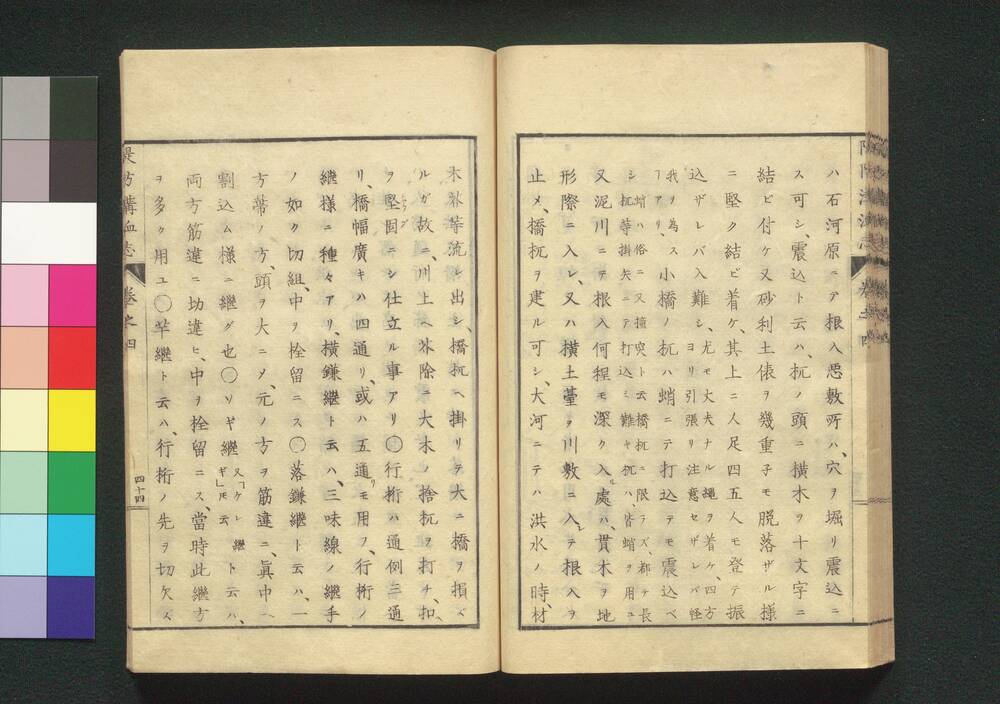 ハ石河原ニテ根入悪敷所ハ、穴ヲ堀リ震込ニ
ス可シ、震込ト云ハ、杭ノ頭ニ横木ヲ十文字ニ
結ビ付ケ又砂利土俵ヲ幾重子モ脱落ザル様
ニ堅ク結ビ着ケ、其上ニ人足四五人モ登テ振
込ザレバ入難シ、尤モ丈夫ナル縄ヲ着ケ、四方
ヨリ引張リ注意セザレバ怪
我ヲ為ス小橋ノ杭ハ蛸ニテ打込テモ震込ベ
「アリ、蛸ハ俗ニ又撞突ト云橋杭ニ限ラズ、都テ長
シ杭等掛矢ニテ打込シ難キ杭ハ、皆蛸ヲ用ユ
又泥川ニテ根入何程モ深ク入ル處ハ、貫木ヲ地
形際ニ入レ、又ハ横土臺ヲ川敷ニ入レテ根入ヲ
止メ、橋杭ヲ建ル可シ、大河ニテハ洪水ノ時、材
木等流レ出シ、橋杭ヘ掛リテ大ニ橋ヲ損ズ
ルガ故ニ、川上ヘ除ニ大木ノ捨杭ヲ打チ、扣
ヲ堅固ニシ仕立ル事アリ〇行桁ハ通例三通
リ、橋幅廣キハ四通リ、或ハ五通リモ用フ、行桁ノ
継様ニ種々アリ、横鎌継ト云ハ、三味線ノ継手
ノ如ク切組、中ヲ栓留ニス〇落鎌継ト云ハ、一
方蔕ノ方、頭ヲ大ニメ、元ノ方ヲ筋違ニ、眞中ヘ
割込ム様ニ継グ也〇ソギ継又「ケレ継ト云ハ、
ギ」モ云
両方筋違ニ切違ヒ、中ヲ栓留ニス、當時此継方
ヲ多ク用ユ〇竿継ト云ハ、行桁ノ先ヲ切欠ズ
堤防溝洫志
巻之四
四十四